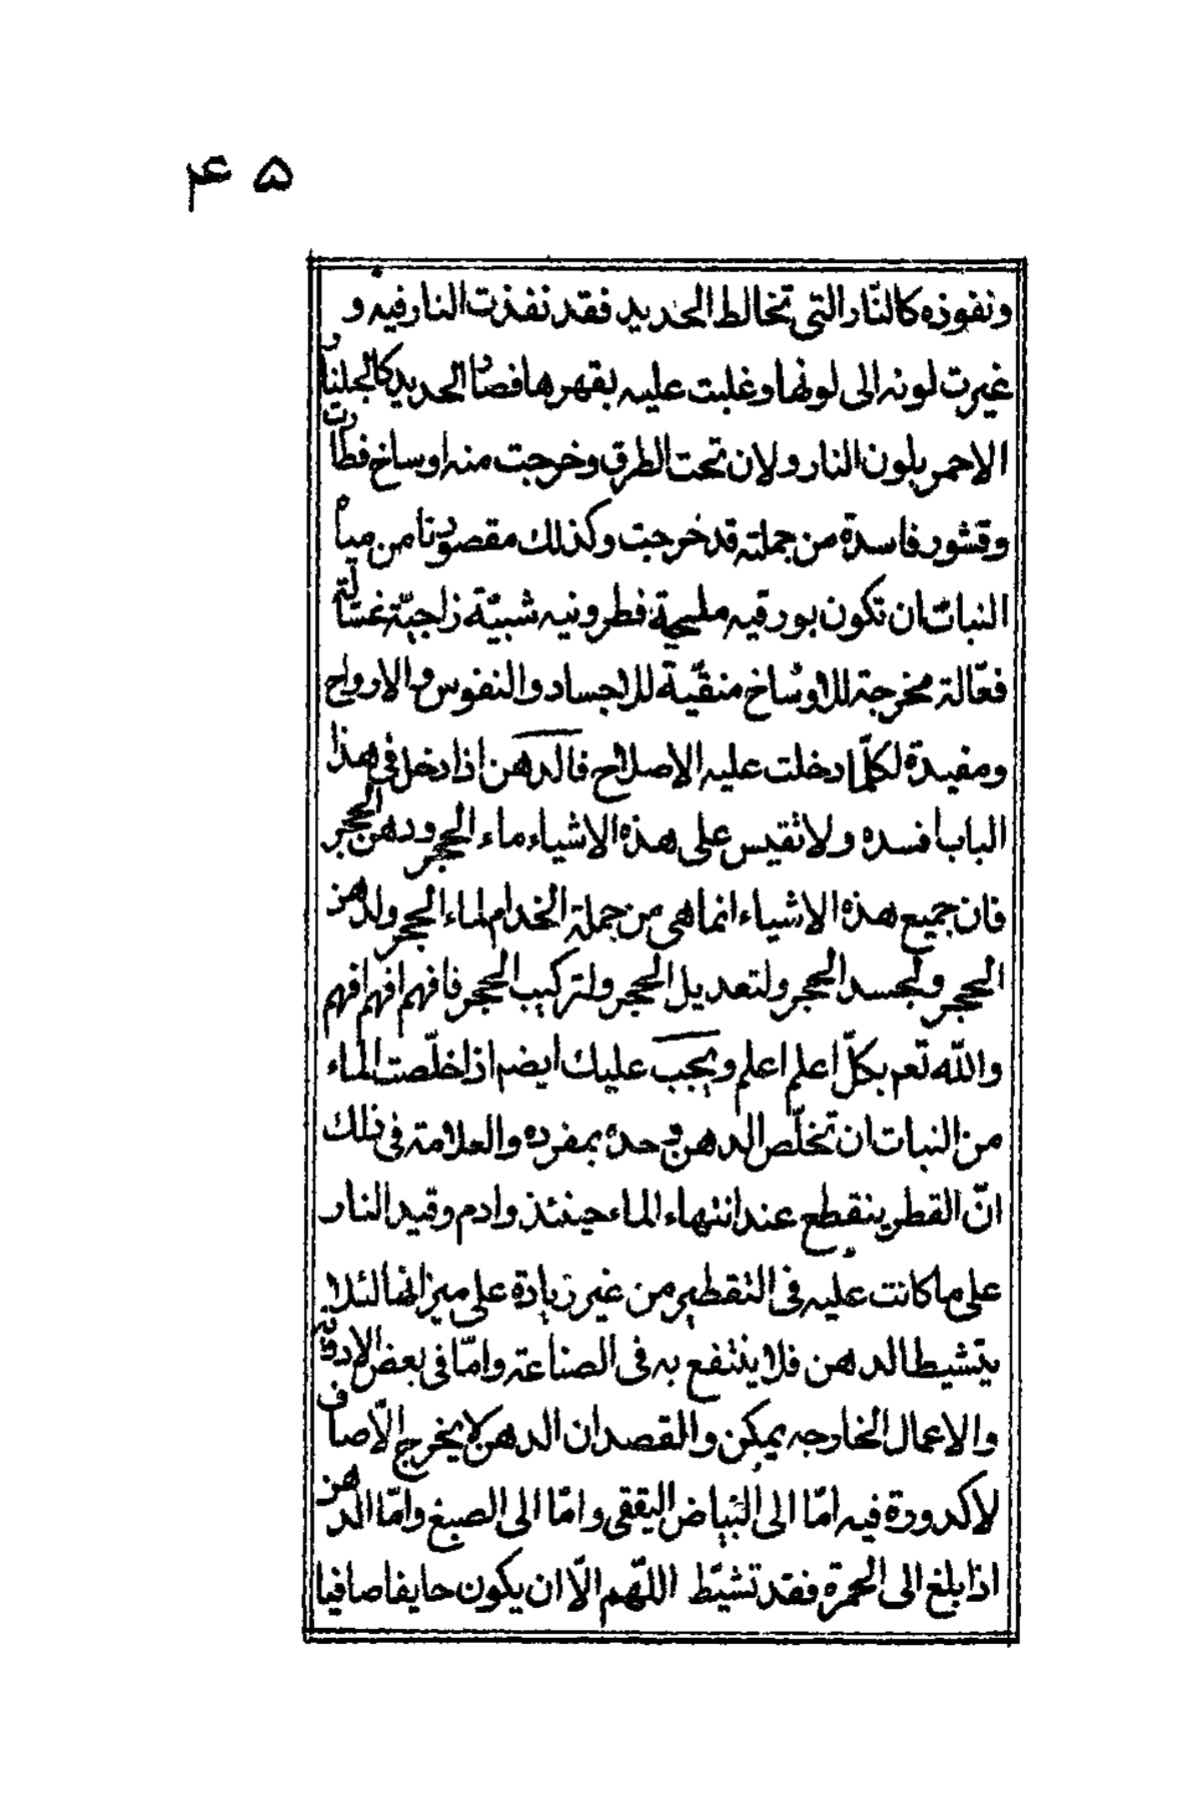 ۴۵
ونفوذه كالنّار التى تخالط الحديد فقد نفذت النار فيه و
غيرت لونه الى لونها وغلبت عليه بقهرها فصار الحديد كالجلنار
الاحمر بلون النار ولان تحت الطرق وخرجت منه اوساخ فطارت
وقشور فاسدة من جملته قد خرجت وكذلك مقصودنا من مياه
النبات ان تكون بورقيه مليحية فطرونيه شبيّة زاجيّة غسّالة
فعّالة مخرجة للاوساخ منقّية للاجساد والنفوس والارواح
ومفيدة لكلّما دخلت عليه الاصلاح فالدهن اذا دخل فى هذا
الباب افسده ولا تقيس على هذه الاشياء ماء الحجر ودهن الحجر
فان جميع هذه الاشياء انما هى من جملة الخدام لماء الحجر ولدهن
الحجر ولجسد الحجر ولتعديل الحجر ولتركيب الحجر فافهم افهم افهم
والله تعم بكلّ اعلم اعلم ويجب عليك ايضم اذا خلّصت الماء
من النبات ان تخلّص الدهن وحده بمفرده والعلامة فى ذلك
انّ القطر ينقطع عند انتهاء الماء حينئذ وادم وقيد النار
على ما كانت عليه فى التقطير من غير زيادة على ميزانها لئلا
يتشيط الدهن فلا ينتفع به فى الصناعة وامّا فى بعض الادوية
والاعمال الخارجه يمكن والقصد ان الدهن لا يخرج الّا صاف
لا كدورة فيه امّا الى البياض اليققى وامّا الى الصبغ وامّا الدهن
اذا بلغ الى الحمرة فقد تشيّط اللهم الّا ان يكون حايفا صافيا